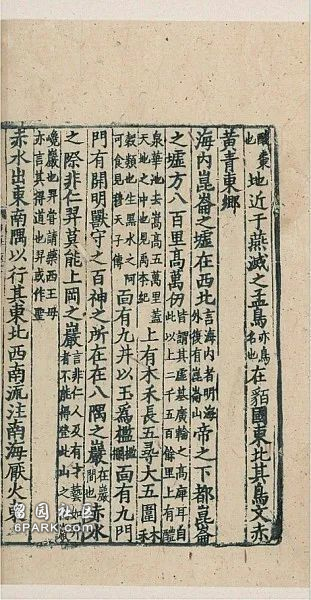 酸棗也地近于燕滅之孟鳥亦鳥名也在貊國東北其鳥文赤
黃青東鄉
海内崑崙之墟在西北言海内者明海外復有崑崙山帝之下都崑崙
之墟方八百里高萬仞皆謂其虛基廣輪之高庳耳自此以上二千五百餘里上有醴
泉華池去嵩高五萬里蓋天地之中也見禹本紀上有木禾長五尋大五圍木禾
穀類也生黑水之阿可食見穆天子傳面有九井以玉爲檻檻欄面有九門
門有開明獸守之百神之所在在八隅之巖在巖間也赤水
之際非仁羿莫能上岡之巖言非仁人及有才藝如羿者不能得登此山之岡
巖也羿嘗請藥西王母亦言其得道也羿或作聖
赤水出東南隅以行其東北西南流注南海厭火東
留园社区
6PARK.COM